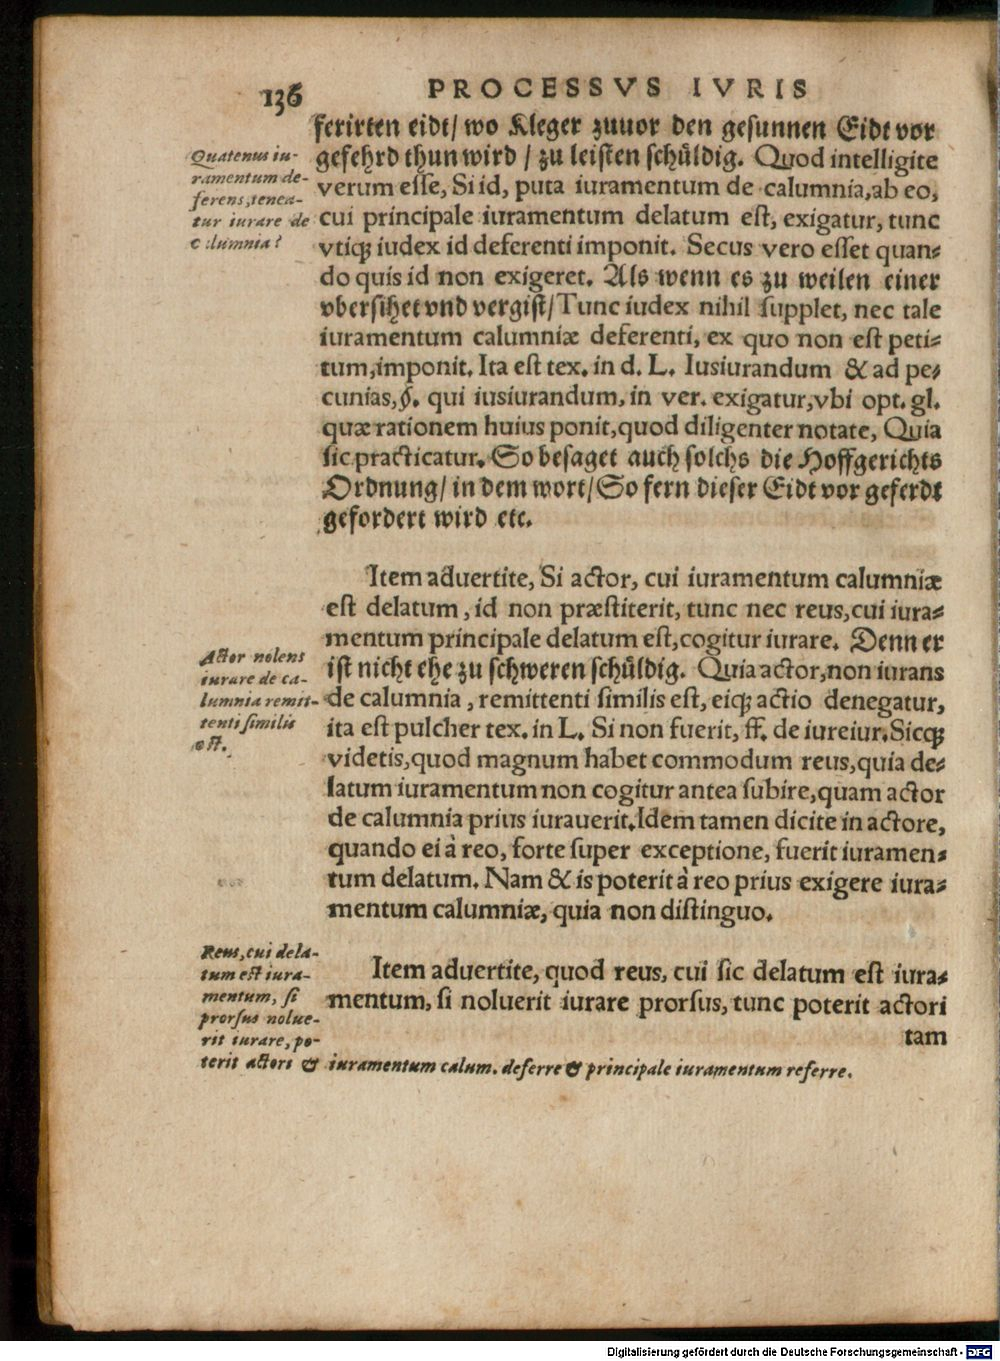 136
PROCESSVS IVRIS
ferirten eidt/ wo Kleger zuuor den gesunnen Eidt vor
gefehrd thun wird / zu leisten schüldig. Quod intelligite
verum esse, Si id, puta iuramentum de calumnia, ab eo,
cui principale iuramentum delatum est, exigatur, tunc
vtiq; iudex id deferenti imponit. Secus vero esset quan-
do quis id non exigeret. Als wenn es zu weilen einer
vbersihet vnd vergist/ Tunc iudex nihil supplet, nec tale
iuramentum calumniæ deferenti, ex quo non est peti-
tum, imponit. Ita est tex. in d. L. Iusiurandum & ad pe-
cunias, §. qui iusiurandum, in ver. exigatur, vbi opt. gl.
quæ rationem huius ponit, quod diligenter notate, Quia
sic practicatur. So besaget auch solchs die Hoffgerichts
Ordnung/ in dem wort/ So fern dieser Eidt vor geferdt
gefordert wird etc.
Quatenus iu-
ramentum de-
ferens, tenea-
tur iurare de
calumnia?
Item aduertite, Si actor, cui iuramentum calumniæ
est delatum, id non præstiterit, tunc nec reus, cui iura-
mentum principale delatum est, cogitur iurare. Denn er
ist nicht ehe zu schweren schüldig. Quia actor, non iurans
de calumnia, remittenti similis est, eiq; actio denegatur,
ita est pulcher tex. in L. Si non fuerit, ff. de iureiur. Sicq;
videtis, quod magnum habet commodum reus, quia de-
latum iuramentum non cogitur antea subire, quam actor
de calumnia prius iurauerit. Idem tamen dicite in actore,
quando ei à reo, forte super exceptione, fuerit iuramen-
tum delatum. Nam & is poterit à reo prius exigere iura-
mentum calumniæ, quia non distinguo.
Actor nolens
iurare de ca-
lumnia remit-
tenti similis
est.
Item aduertite, quod reus, cui sic delatum est iura-
mentum, si noluerit iurare prorsus, tunc poterit actori
tam
Reus, cui dela-
tum est iura-
mentum, si
prorsus nolue-
rit iurare, po-
terit actori & iuramentum calum. deferre & principale iuramentum referre.
Digitalisierung gefördert durch die Deutsche Forschungsgemeinschaft - DFG